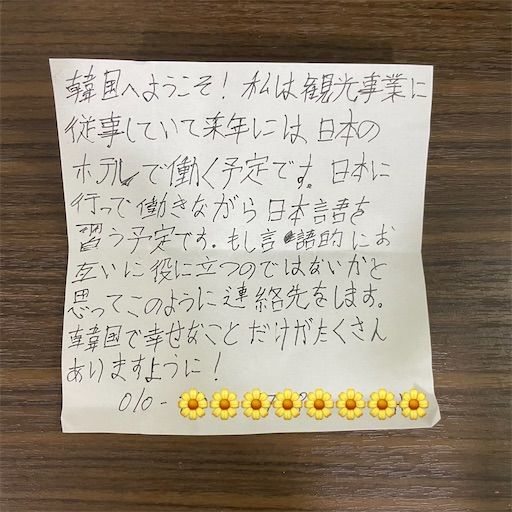 韓国へようこそ! 私は観光事業に
従事していて来年には日本の
ホテルで働く予定です。日本に
行って働きながら日本語を
習う予定です. もし言語的にお
互いに役に立つのではないかと
思ってこのように連絡先をします。
韓国で幸せなことだけがたくさん
ありますように!
010-